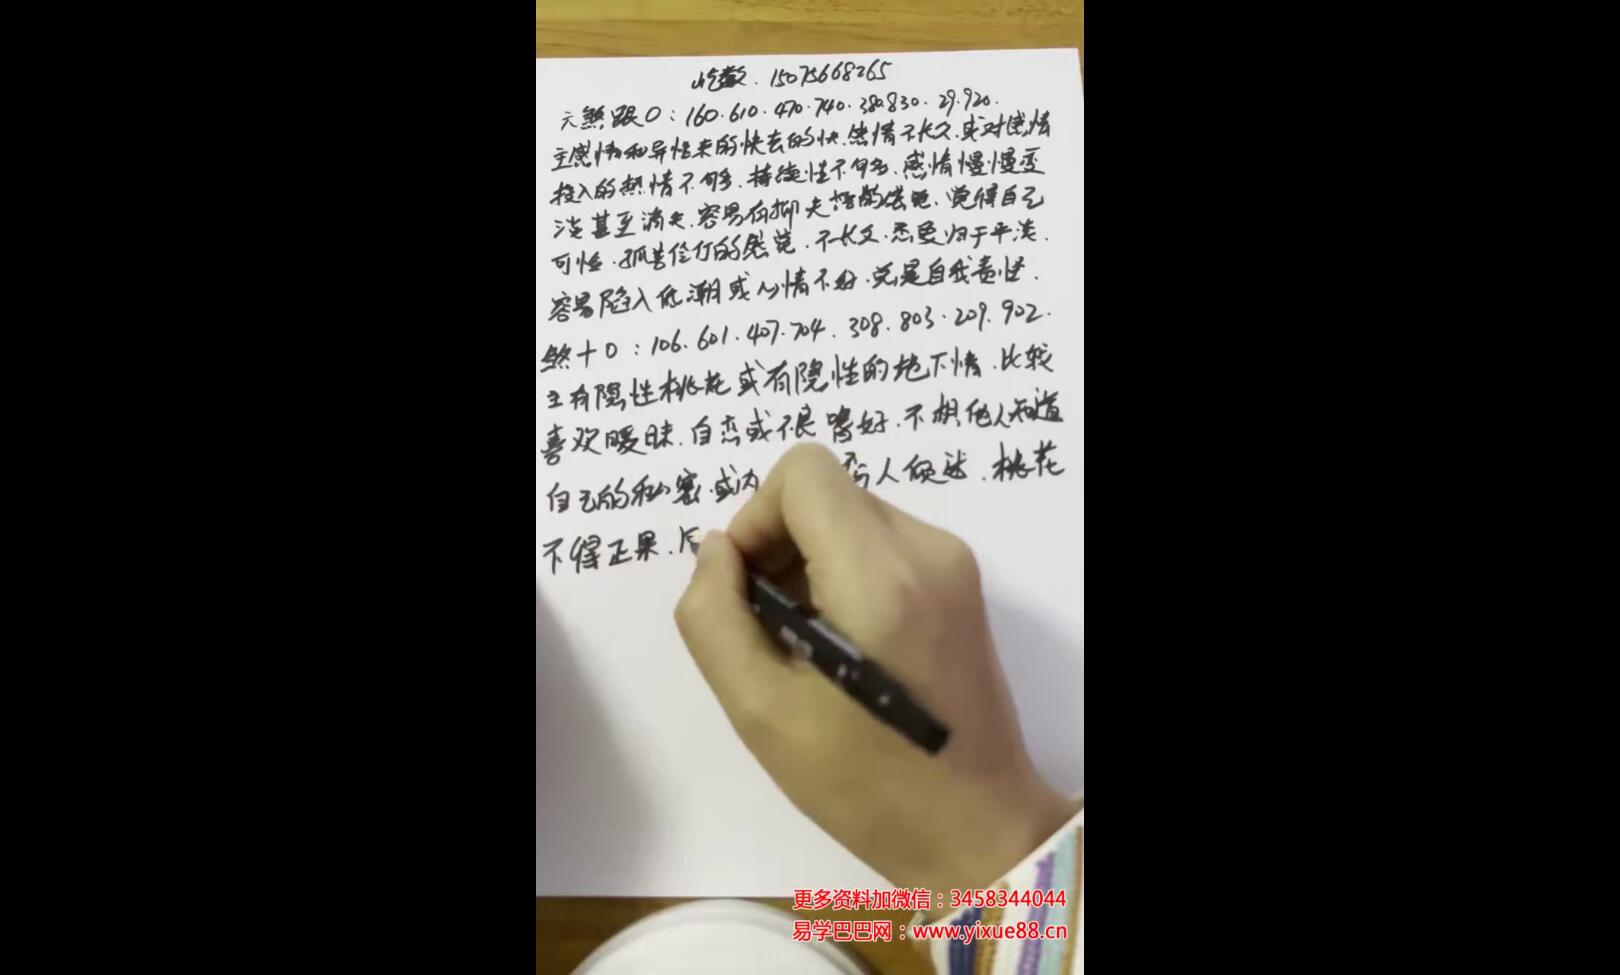 屹数.15075668265
六煞跟0：160.610.470.740.380.830.29.920.
主感情和异性来的快去的快.感情不长久.或对感情
投入的热情不够.持续性不够.感情慢慢变
淡甚至消失.容易有抑 的感觉.觉得自己
可怜.孤苦伶仃的感觉.不长久.悉更归于平淡.
容易陷入低潮或心情不好.总是自我责怪.
煞十0：106.601.407.704.308.803.209.902.
主有隐性桃花或有隐性的地下情.比较
喜欢暧昧.自恋或不良嗜好.不想他人知道
自己的私密.或 人倾述.桃花
不得正果.
更多资料加微信：3458344044
易学巴巴网：www.yixue88.cn